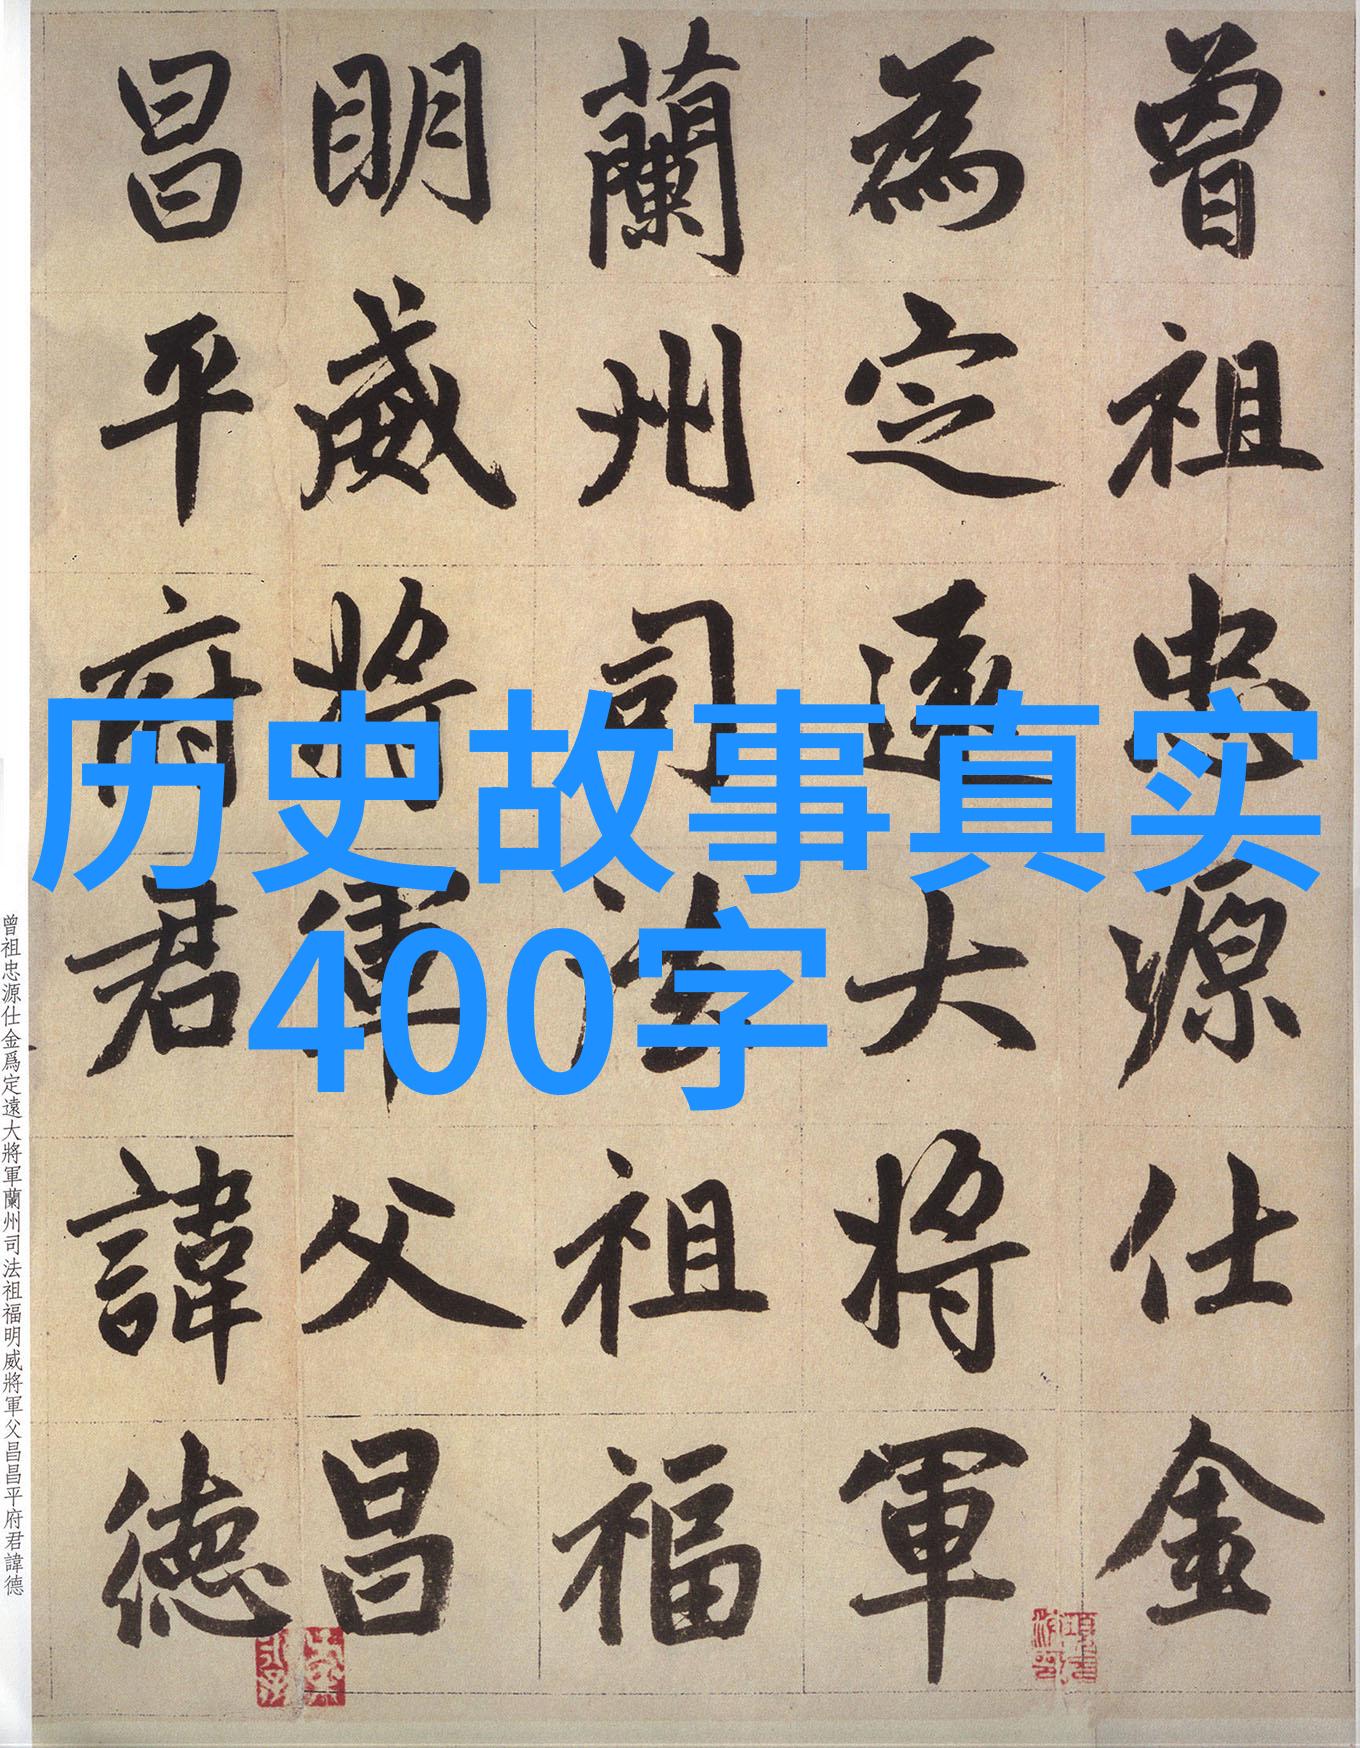 曾祖忠源仕金
為定遠大將軍
蘭州司法祖福
明威將軍父昌
昌平府君諱德
历史故事真实
400字
曾祖忠源仕金爲定遠大將軍蘭州司法祖福明威將軍父昌昌平府君諱德